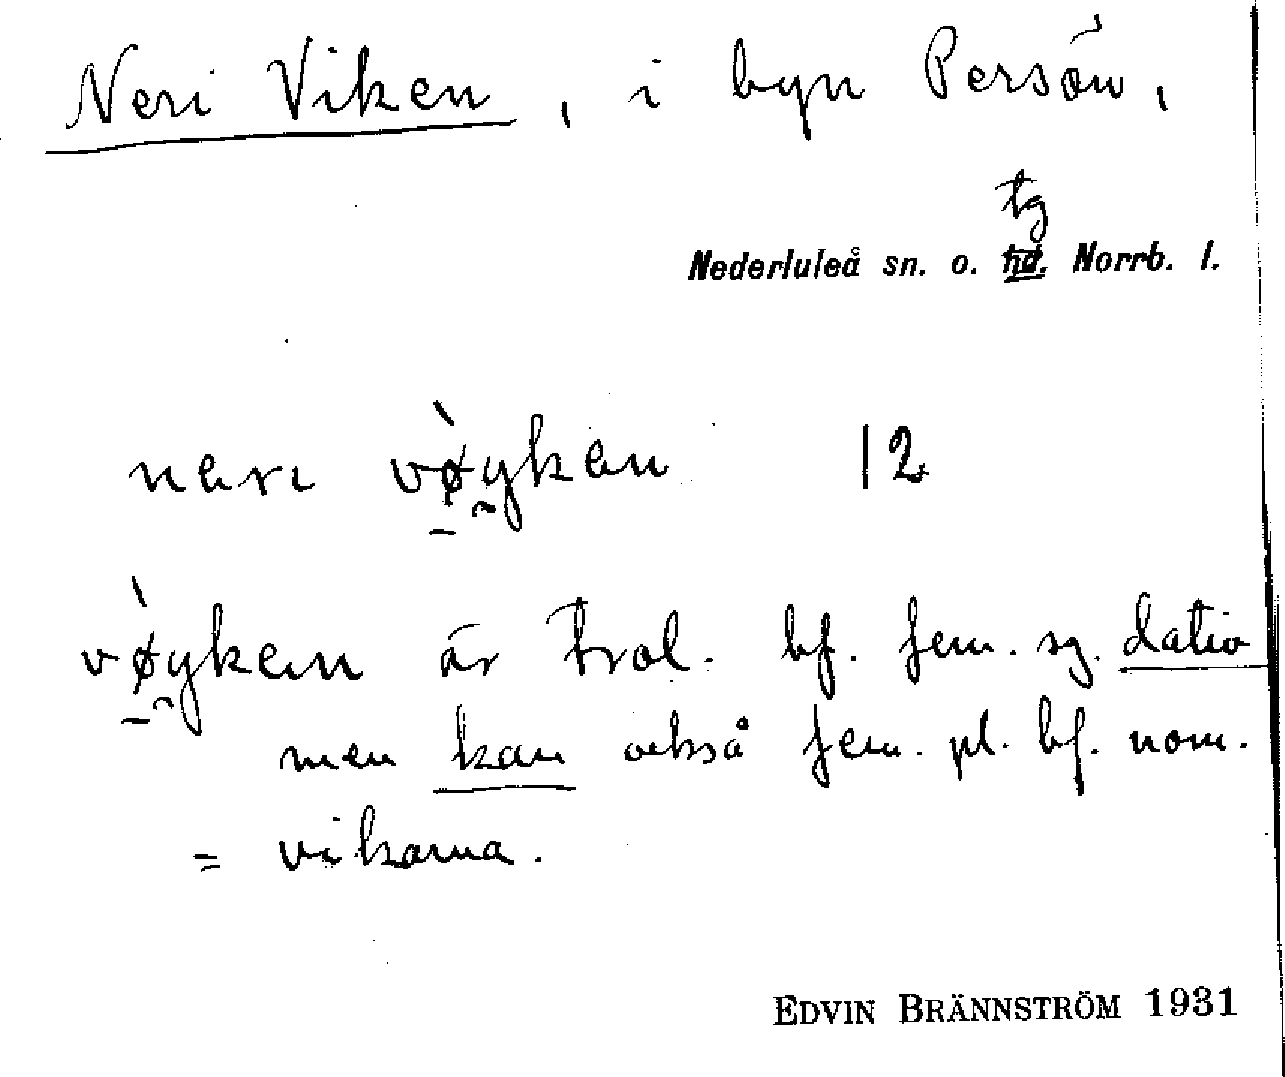 Neri Viken, i byn Persön,
tg
Nederluleå sn. o. hd. Norrb. l.
neri vø̀yken 12
vø̀yken är trol. bf. fem. sg. dativ
men kan också fem. pl. bf. nom.
= vikarna.
EDVIN BRÄNNSTRÖM 1931